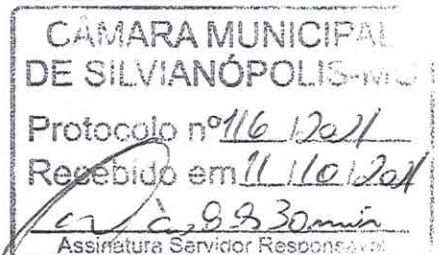 CÂMARA MUNICIPAL
DE SILVIANÓPOLIS-MG
Protocolo nº 116 / 2021
Recebido em 11 / 10 / 2021
às 30min
Assinatura Servidor Responsável